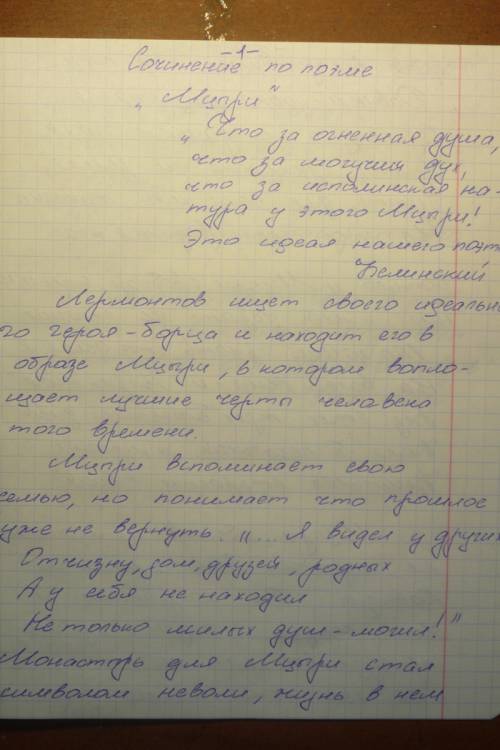 -1-
Сочинение по поэме
„ Мцыри"
„ Что за огненная душа,
что за могучий дух,
что за исполинская на-
тура у этого Мцыри!
Это идеал нашего поэт
Белинский
Лермонтов ищет своего идеально
го героя-борца и находит его в
образе Мцыри, в котором вопло-
щает лучшие черты человека
того времени.
Мцыри вспоминает свою
семью, но понимает что прошлое
уже не вернуть. „... Я видел у других
Отчизну, дом, друзей, родных
А у себя не находил
Не только милых душ - могил!"
Монастырь для Мцыри стал
символом неволи, жизнь в нем